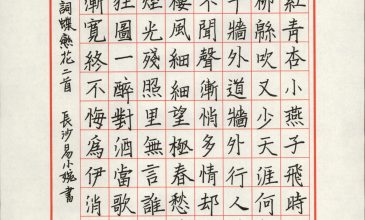 紅青杏小燕子飛時
柳緜吹又少天涯何
千牆外道牆外行人
不聞聲漸悄多情却
樓風細細望極春愁
煙光殘照里無言誰
狂圖一醉對酒當歌
漸寬終不悔爲伊消
詞蝶戀花二首 長沙易小琬書